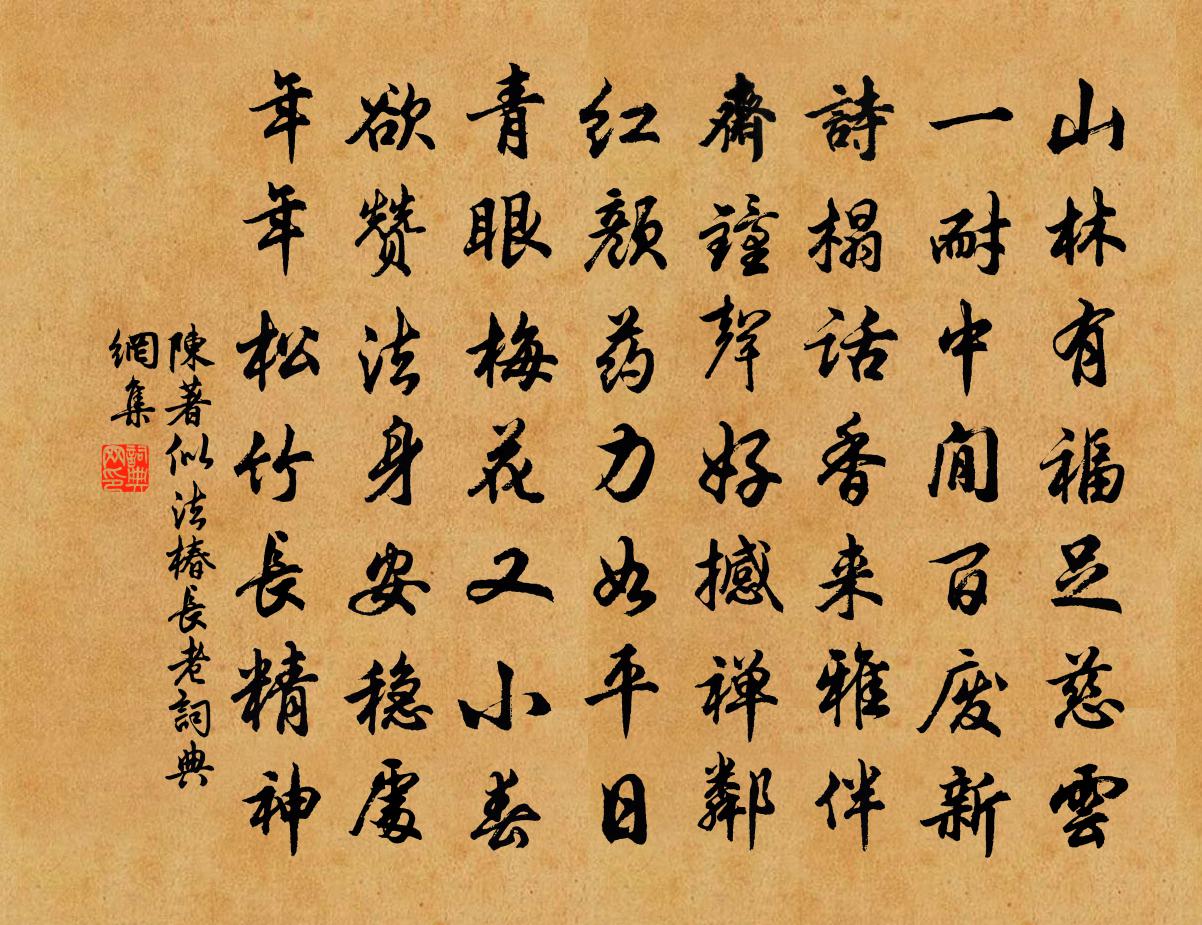 山林有福足慈雲
一耐中間百废新
詩榻話香来雅伴
齋鐘聲好撼禅鄰
红颜药力如平日
青眼梅花又小春
欲赞法身安稳處
年年松竹長精神
陳著似法椿長老詞典
網集
詞典
网印